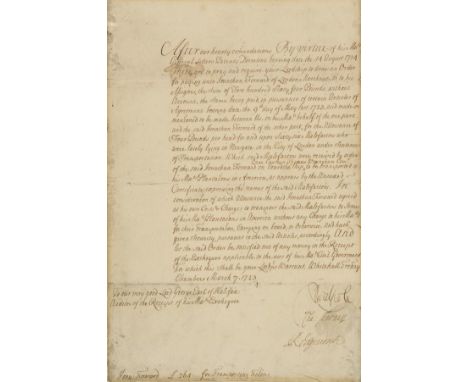 After our hearty commendations By virtue of his Ma:ts
General Letters Patents Dormant bearing date the 14 August 1714
These are to pray and require your Lordship to draw an Order
for paying unto Jonathan Forward of London Merchant, or to his
Assignes, the sume of Two hundred Sixty four Pounds without
Account, the same being paid in pursuance of certain Articles of
Agreement bearing date the 9th day of May last 1722, and made or
mentioned to be made between Us, on his Ma:ts behalf of the one part,
and the said Jonathan Forward of the other part, for the Allowance of
Four Pounds per head for and upon Sixty six Malefactors who
were lately lying in Newgate, in the City of London under Sentence
of Transportation Which said Malefactors were received by order
of the said Jonathan Forward on board the Ship to be transported to
his Ma:ts Plantations in America, as appears by the Annexed
Certificate, expressing the names of the said Malefactors, In
consideration of which Allowance the said Jonathan Forward agreed
at his own Costs & Charges to transport the said Malefactors to Some
of his Ma:ts Plantations in America without any Charge to his Ma:ts
for their Transportation, Carrying on board, or Otherwise, and hath
given Security, pursuant to the said Articles, accordingly And
let the said Order be satisfied out of any money in the Receipt
of the Exchequer applicable to the uses of his Ma:ts Civil Government
For which this shall be your Lordps Warrant Whitehall Treary
Chambers March 7. 1723
To our very good Lord George Earl of Halifax
Auditor of the Receipt of his Ma:ts Exchequer
R Walpole
Jonn Forward £ 264 for Transporting Felons